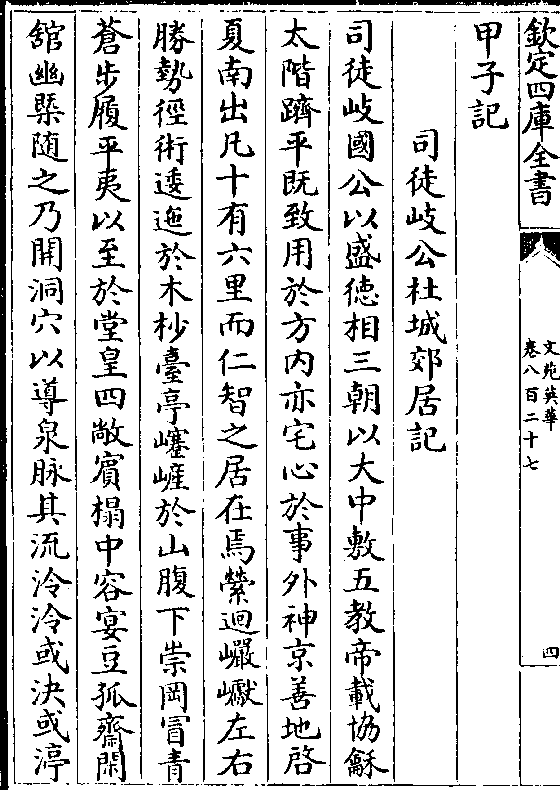 欽定四庫全書
文苑英華
卷八百二十七
四
甲子記
司徒岐公杜城郊居記
司徒岐國公以盛徳相三朝以大中敷五教帝載協龢
太階躋平既致用於方内亦宅心於事外神京善地啓
夏南出凡十有六里而仁智之居在焉縈迴巗巘左右
勝勢徑術逶迤於木杪臺亭㠔嵼於山腹下崇岡冒青
蒼步履平夷以至於堂皇四敞賓榻中容宴豆孤齋閒
舘幽槩随之乃開洞穴以導泉脉其流泠泠或決或渟